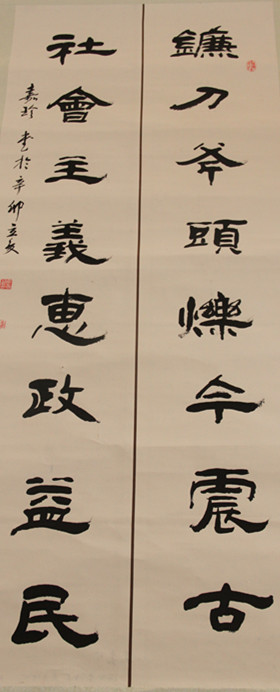 鐮刀斧頭爍今震古
社會主義惠政益民
嘉玲書於辛卯立夏